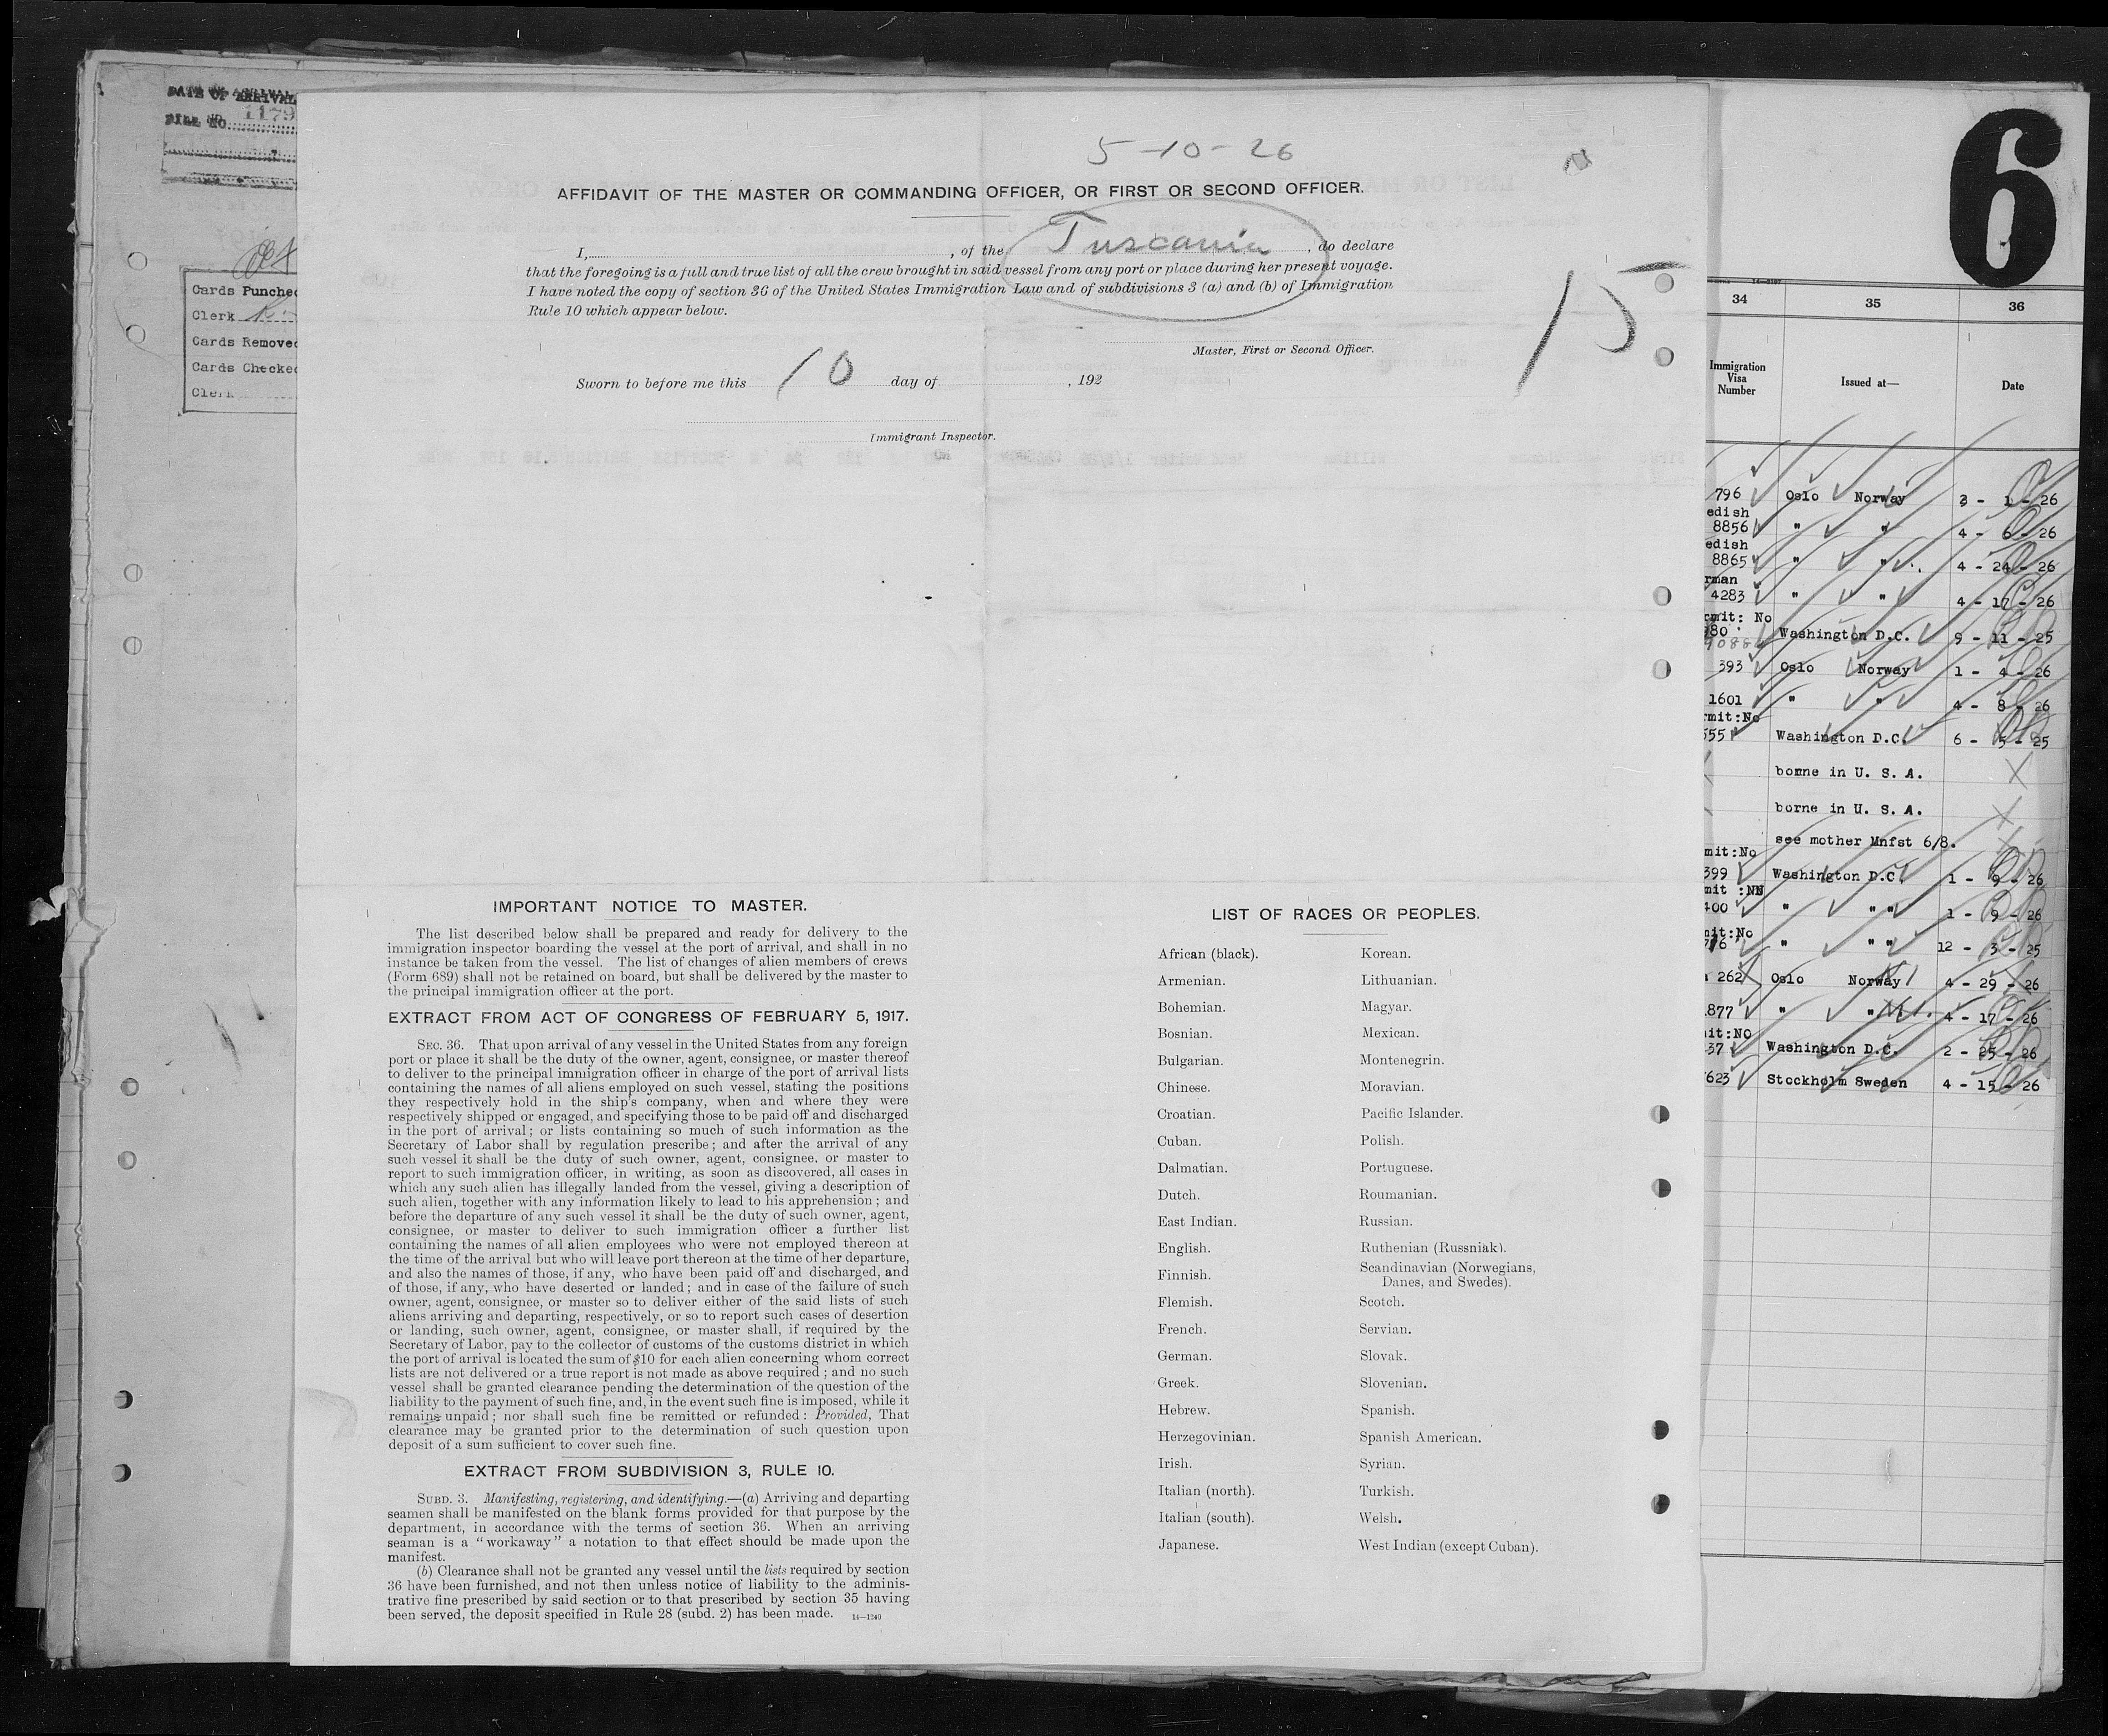 DATE OF ARRIVAL
FILE NO. 1179
Cards Punched
Clerk
Cards Removed
Cards Checked
Clerk
5-10-26
AFFIDAVIT OF THE MASTER OR COMMANDING OFFICER, OR FIRST OR SECOND OFFICER.
I, , of the Tuscania , do declare
that the foregoing is a full and true list of all the crew brought in said vessel from any port or place during her present voyage.
I have noted the copy of section 36 of the United States Immigration Law and of subdivisions 3 (a) and (b) of Immigration
Rule 10 which appear below.
15
Master, First or Second Officer.
Sworn to before me this 10 day of , 192
Immigrant Inspector.
IMPORTANT NOTICE TO MASTER.
The list described below shall be prepared and ready for delivery to the
immigration inspector boarding the vessel at the port of arrival, and shall in no
instance be taken from the vessel. The list of changes of alien members of crews
(Form 689) shall not be retained on board, but shall be delivered by the master to
the principal immigration officer at the port.
EXTRACT FROM ACT OF CONGRESS OF FEBRUARY 5, 1917.
SEC. 36. That upon arrival of any vessel in the United States from any foreign
port or place it shall be the duty of the owner, agent, consignee, or master thereof
to deliver to the principal immigration officer in charge of the port of arrival lists
containing the names of all aliens employed on such vessel, stating the positions
they respectively hold in the ship's company, when and where they were
respectively shipped or engaged, and specifying those to be paid off and discharged
in the port of arrival; or lists containing so much of such information as the
Secretary of Labor shall by regulation prescribe; and after the arrival of any
such vessel it shall be the duty of such owner, agent, consignee, or master to
report to such immigration officer, in writing, as soon as discovered, all cases in
which any such alien has illegally landed from the vessel, giving a description of
such alien, together with any information likely to lead to his apprehension; and
before the departure of any such vessel it shall be the duty of such owner, agent,
consignee, or master to deliver to such immigration officer a further list
containing the names of all alien employees who were not employed thereon at
the time of the arrival but who will leave port thereon at the time of her departure,
and also the names of those, if any, who have been paid off and discharged, and
of those, if any, who have deserted or landed; and in case of the failure of such
owner, agent, consignee, or master so to deliver either of the said lists of such
aliens arriving and departing, respectively, or so to report such cases of desertion
or landing, such owner, agent, consignee, or master shall, if required by the
Secretary of Labor, pay to the collector of customs of the customs district in which
the port of arrival is located the sum of $10 for each alien concerning whom correct
lists are not delivered or a true report is not made as above required; and no such
vessel shall be granted clearance pending the determination of the question of the
liability to the payment of such fine, and, in the event such fine is imposed, while it
remains unpaid; nor shall such fine be remitted or refunded: Provided, That
clearance may be granted prior to the determination of such question upon
deposit of a sum sufficient to cover such fine.
EXTRACT FROM SUBDIVISION 3, RULE 10.
SUBD. 3. Manifesting, registering, and identifying.—(a) Arriving and departing
seamen shall be manifested on the blank forms provided for that purpose by the
department, in accordance with the terms of section 36. When an arriving
seaman is a "workaway" a notation to that effect should be made upon the
manifest.
(b) Clearance shall not be granted any vessel until the lists required by section
36 have been furnished, and not then unless notice of liability to the adminis-
trative fine prescribed by said section or to that prescribed by section 35 having
been served, the deposit specified in Rule 28 (subd. 2) has been made. 14—1240
LIST OF RACES OR PEOPLES.
African (black). Korean.
Armenian. Lithuanian.
Bohemian. Magyar.
Bosnian. Mexican.
Bulgarian. Montenegrin.
Chinese. Moravian.
Croatian. Pacific Islander.
Cuban. Polish.
Dalmatian. Portuguese.
Dutch. Roumanian.
East Indian. Russian.
English. Ruthenian (Russniak).
Finnish. Scandinavian (Norwegians,
Danes, and Swedes).
Flemish. Scotch.
French. Servian.
German. Slovak.
Greek. Slovenian.
Hebrew. Spanish.
Herzegovinian. Spanish American.
Irish. Syrian.
Italian (north). Turkish.
Italian (south). Welsh.
Japanese. West Indian (except Cuban).
6
34 35 36
Immigration
Visa
Number
Issued at—
Date
796 Oslo Norway 3 - 1 - 26
edish
8856 " " 4 - 6 - 26
edish
8865 " " 4 - 24 - 26
rman
4283 " " 4 - 17 - 26
rmit: No
380 Washington D.C. 9 - 11 - 25
393 Oslo Norway 1 - 4 - 26
1601 " " 4 - 8 - 26
rmit:No
555 Washington D.C. 6 - 5 - 25
borne in U. S. A.
borne in U. S. A.
see mother Mnfst 6/8.
mit:No
399 Washington D.C. 1 - 9 - 26
mit :NN
400 " " " 1 - 9 - 26
mit:No
776 " " " 12 - 3 - 25
262 Oslo Norway 4 - 29 - 26
877 " " 4 - 17 - 26
mit:NO
37 Washington D.C. 2 - 25 - 26
623 Stockholm Sweden 4 - 15 - 26